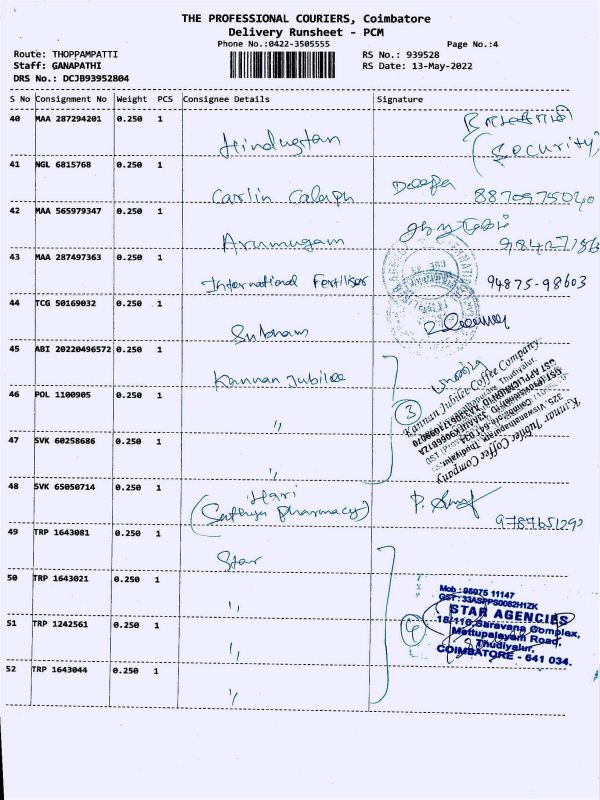 THE PROFESSIONAL COURIERS, Coimbatore
Delivery Runsheet - PCM
Phone No.:0422-3505555
Page No.:4
Route: THOPPAMPATTI
RS No.: 939528
Staff: GANAPATHI
RS Date: 13-May-2022
DRS No.: DCJB93952804
S No Consignment No Weight PCS Consignee Details Signature
40 MAA 287294201 0.250 1
Hindustan
(Security)
41 NGL 6815768 0.250 1
Carlin Calaph Deepa 8870975040
42 MAA 565979347 0.250 1
Arumugam
43 MAA 287497363 0.250 1
International Fertiliser 94875-98603
44 TCG 50169032 0.250 1
Subham
45 ABI 20220496572 0.250 1
Kannan Jubilee
Kannan Jubilee Coffee Company
46 POL 1100905 0.250 1
"
3
47 SVK 60258686 0.250 1
"
48 SVK 65050714 0.250 1
Hari
(Sathya pharmacy)
9787651292
49 TRP 1643081 0.250 1
Star
50 TRP 1643021 0.250 1
"
Mob : 95975 11147
GST : 33ASPPS0082H1ZK
STAR AGENCIES
18/116, Saravana Complex,
Mettupalayam Road,
Thudiyalur,
COIMBATORE - 641 034.
51 TRP 1242561 0.250 1
"
52 TRP 1643044 0.250 1
"